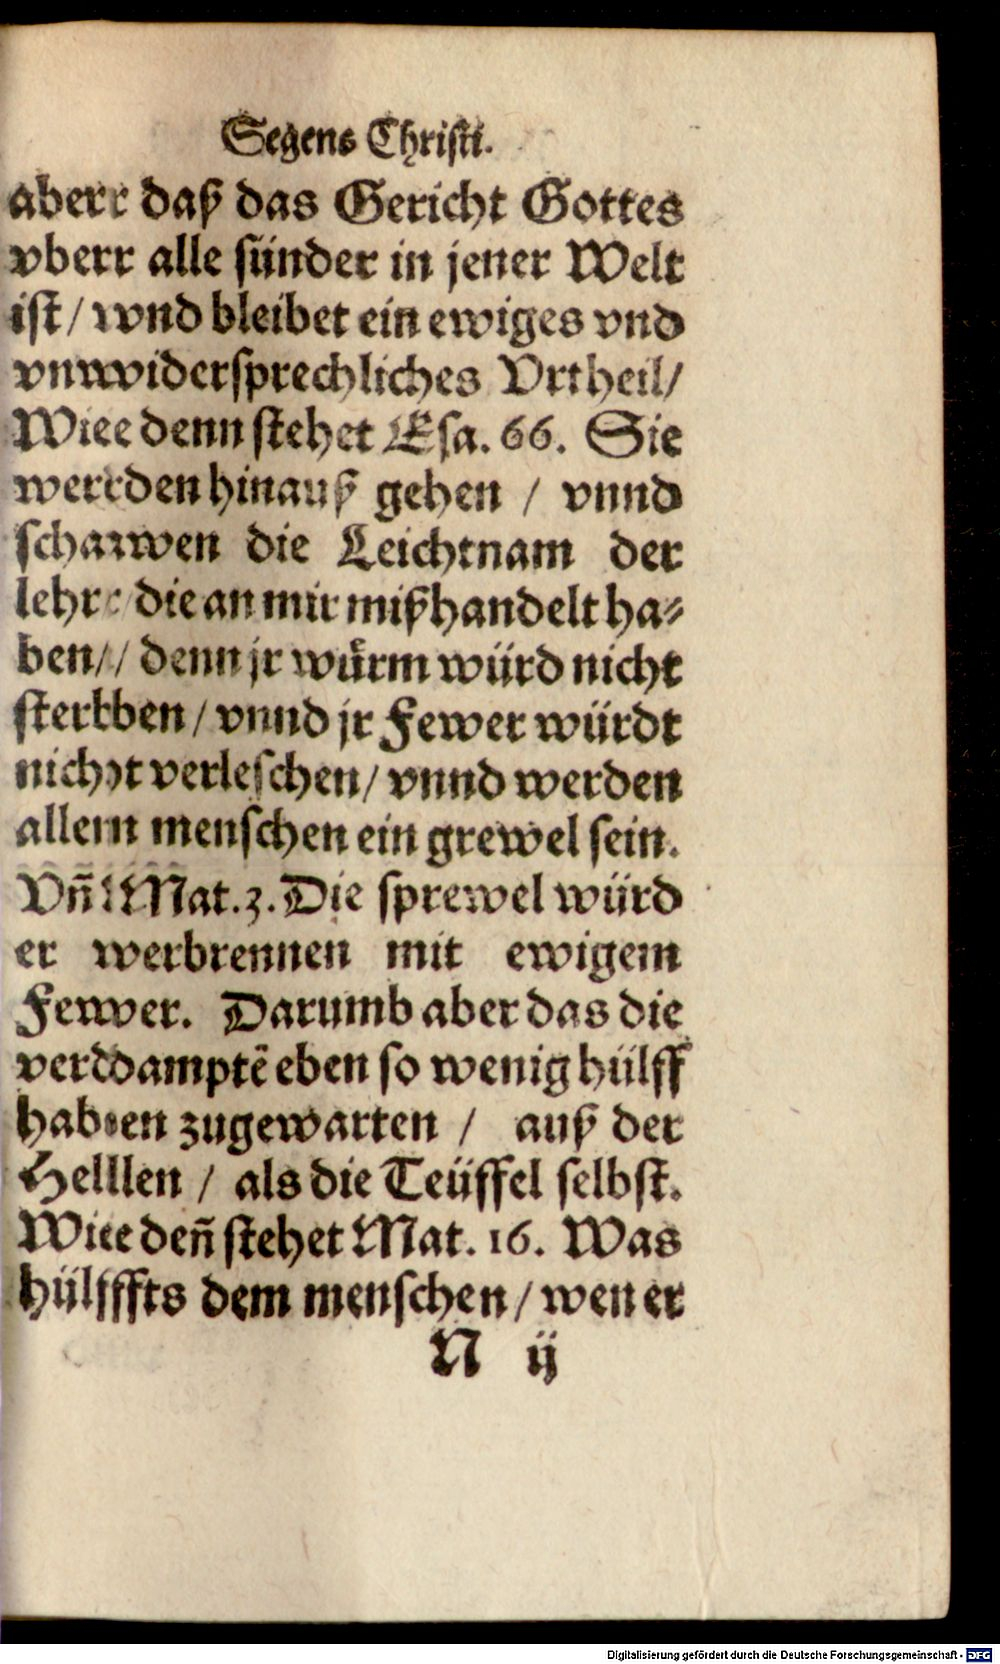 Segens Christi.
aberr daß das Gericht Gottes
vberr alle sünder in jener Welt
ist / wnd bleibet ein ewiges vnd
vnwwidersprechliches Vrtheil /
Wiee denn stehet Esa. 66. Sie
werrden hinauß gehen / vnnd
schawwen die Leichtnam der
lehr die an mir mißhandelt ha⸗
ben // denn jr wuͤrm würd nicht
sterbben / vnnd jr Fewer würdt
nichtt verleschen / vnnd werden
allem menschen ein grewel sein.
Vñ Mat. 3. Die sprewel würd
er werbrennen mit ewigem
Fewwer. Darumb aber das die
verddamptē eben so wenig hülff
habeen zugewarten / auß der
Helllen / als die Teüffel selbst.
Wiee deñ stehet Mat. 16. Was
hülfffts dem menschen / wen er
N ij
Digitalisierung gefördert durch die Deutsche Forschungsgemeinschaft - DFG